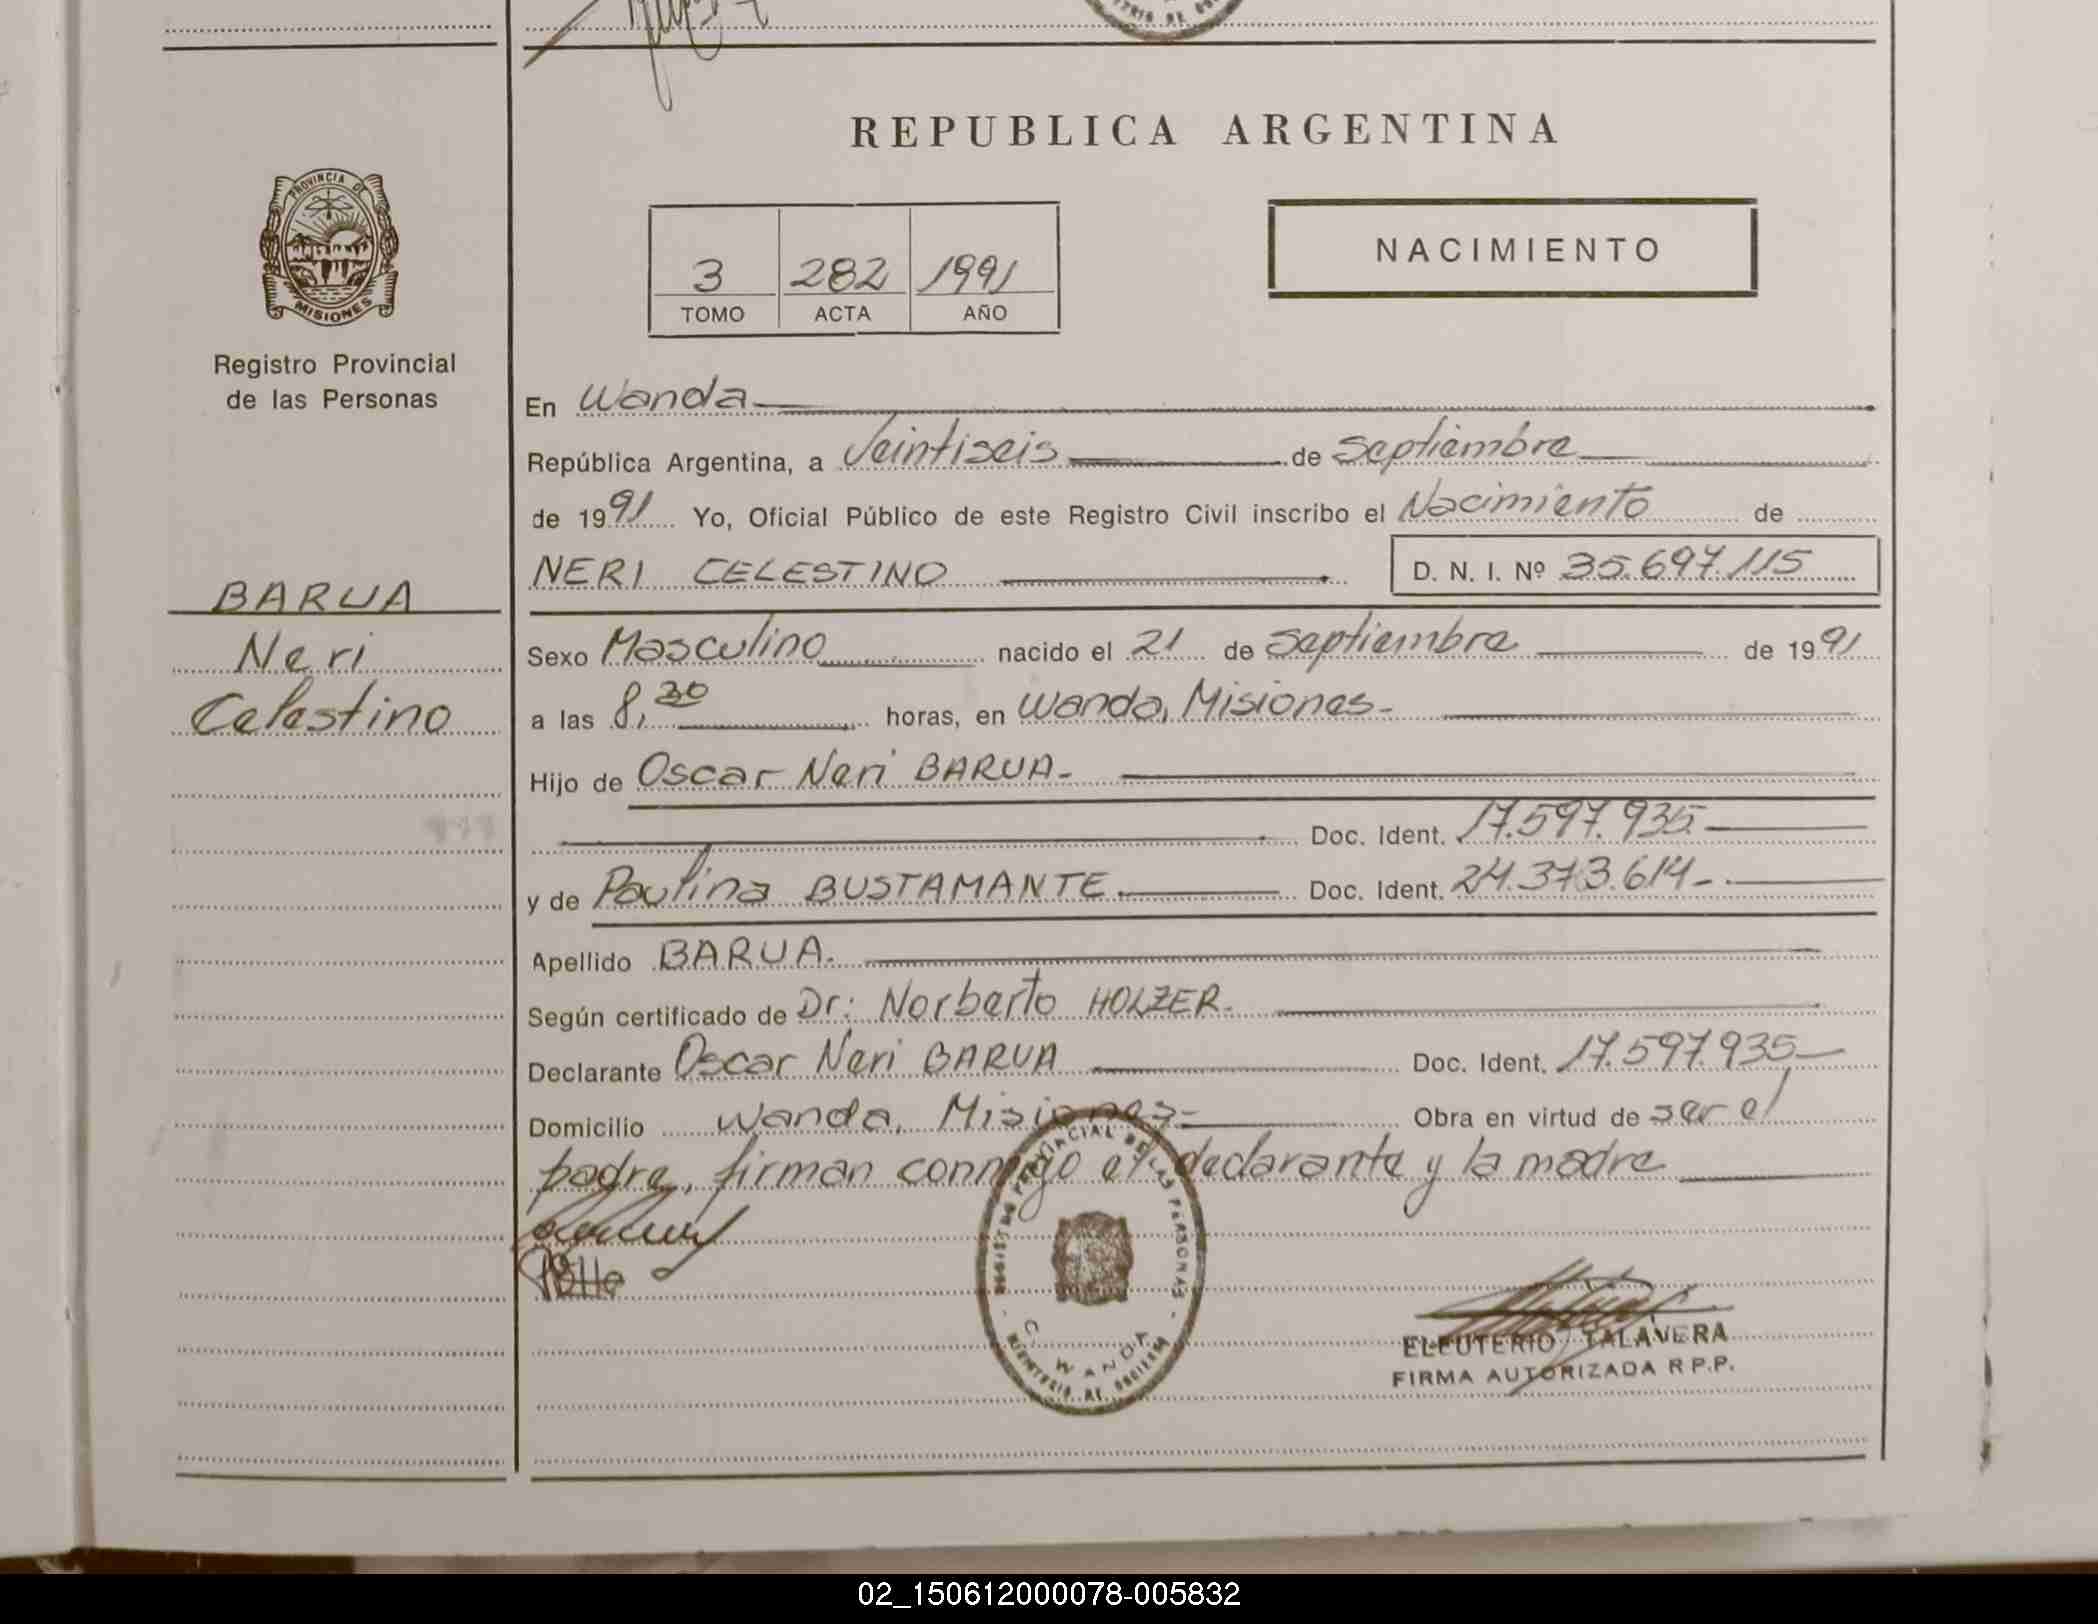 REPUBLICA ARGENTINA
PROVINCIA DE
MISIONES
Registro Provincial
de las Personas
3 282 1991
TOMO ACTA AÑO
NACIMIENTO
En Wanda
República Argentina, a Veintiseis de Septiembre
de 1991 Yo, Oficial Público de este Registro Civil inscribo el Nacimiento de
NERI CELESTINO D. N. I. Nº 35.697.115
BARUA
Neri
Celestino
Sexo Masculino nacido el 21 de Septiembre de 1991
a las 8,30 horas, en Wanda, Misiones-
Hijo de Oscar Neri BARUA-
Doc. Ident. 17.597.935
y de Paulina BUSTAMANTE. Doc. Ident. 24.373.614-
Apellido BARUA.
Según certificado de Dr: Norberto HOLZER.
Declarante Oscar Neri BARUA Doc. Ident. 17.597.935
Domicilio Wanda, Misiones- Obra en virtud de ser el
padre, firman conmigo el declarante y la madre
REGISTRO PROVINCIAL DE LAS PERSONAS
WANDA
ELEUTERIO TALAVERA
FIRMA AUTORIZADA R P.P.
02_150612000078-005832